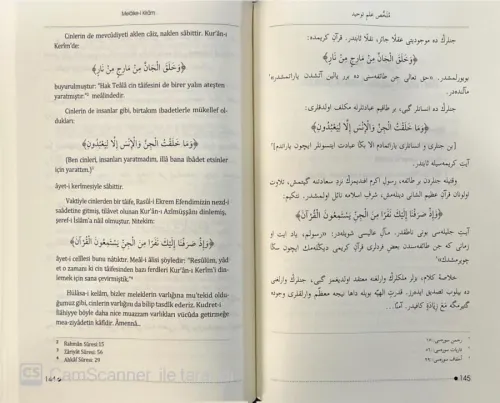 Melâike-i Kirâm
Cinlerin de mevcûdiyeti aklen câiz, naklen sâbittir. Kur'ân-ı
Kerîm'de:
﴿وَخَلَقَ الْجَانَّ مِنْ مَارِجٍ مِنْ نَارٍ﴾
buyurulmuştur: "Hak Teâlâ cin tâifesini de birer yalın ateşten
yaratmıştır."² meâlindedir.
Cinlerin de insanlar gibi, birtakım ibadetlerle mükellef ol-
dukları:
﴿وَمَا خَلَقْتُ الْجِنَّ وَالْإِنْسَ إِلَّا لِيَعْبُدُونِ﴾
[Ben cinleri, insanları yaratmadım, illâ bana ibâdet etsinler
için yarattım.]³
âyet-i kerîmesiyle sâbittir.
Vaktiyle cinlerden bir tâife, Rasûl-i Ekrem Efendimizin nezd-i
saâdetine gitmiş, tilâvet olunan Kur'ân-ı Azîmüşşânı dinlemiş,
şeref-i İslâm'a nâil olmuştur. Nitekim:
﴿وَإِذْ صَرَفْنَا إِلَيْكَ نَفَرًا مِنَ الْجِنِّ يَسْتَمِعُونَ الْقُرْآنَ﴾
âyet-i celîlesi bunu nâtıktır. Meâl-i âlîsi şöyledir: "Resûlüm, yâd
et o zamanı ki cin tâifesinden bazı ferdleri Kur'ân-ı Kerîm'i din-
lemek için sana çevirmiştik."⁴
Hülâsa-i kelâm, bizler meleklerin varlığına mu'tekid oldu-
ğumuz gibi, cinlerin varlığını da bilip tasdîk ederiz. Kudret-i
ilâhiyye böyle daha nice muazzam varlıkları vücûda getirmeğe
mea-ziyâdetin kâfidir. Âmennâ..
2 Rahmân Sûresi 15
3 Zâriyât Sûresi: 56
4 Ahkâf Sûresi: 29
CS CamScanner ile
ملخص علم توحيد
جنلرك ده موجوديتى عقلًا جائز، نقلًا ثابتدر. قرآن كريمده:
﴿وَخَلَقَ الْجَانَّ مِنْ مَارِجٍ مِنْ نَارٍ﴾
بويورلمشدر. «حق تعالى جن طائفه‌سنى ده برر يالين آتشدن ياراتمشدر»
مآلنده‌در.
جنلرك ده انسانلر گبى، بر طاقيم عبادتلرله مكلف اولدقلرى:
﴿وَمَا خَلَقْتُ الْجِنَّ وَالْإِنْسَ إِلَّا لِيَعْبُدُونِ﴾
[بن جنلرى و انسانلرى ياراتمادم الا بكا عبادت ايتسونلر ايچون ياراتدم]
آيت كريمه‌سيله ثابتدر.
وقتيله جنلردن بر طائفه، رسول اكرم افنديمزك نزد سعادتنه گيتمش، تلاوت
اولونان قرآن عظيم الشانى ديكله‌مش، شرف اسلامه نائل اولمشدر. نتكيم:
﴿وَإِذْ صَرَفْنَا إِلَيْكَ نَفَرًا مِنَ الْجِنِّ يَسْتَمِعُونَ الْقُرْآنَ﴾
آيت جليله‌سى بونى ناطقدر. مآل عاليسى شويله‌در: «رسولم، ياد ايت او
زمانى كه جن طائفه‌سندن بعض فردلرى قرآن كريمى ديكله‌مك ايچون سكا
چويرمشدك»
خلاصۀ كلام، بزلر ملكلرك وارلغنه معتقد اولديغمز گبى، جنلرك وارلغنى
ده بيلوب تصديق ايده‌رز. قدرت الهيه بويله داها نيجه معظم وارلقلرى وجوده
گتيرمگه مع زيادة كافيدر. آمنّا...
٢ رحمن سوره‌سى: ١٥
٣ ذاريات سوره‌سى: ٥٦
٤ احقاف سوره‌سى: ٢٩
145